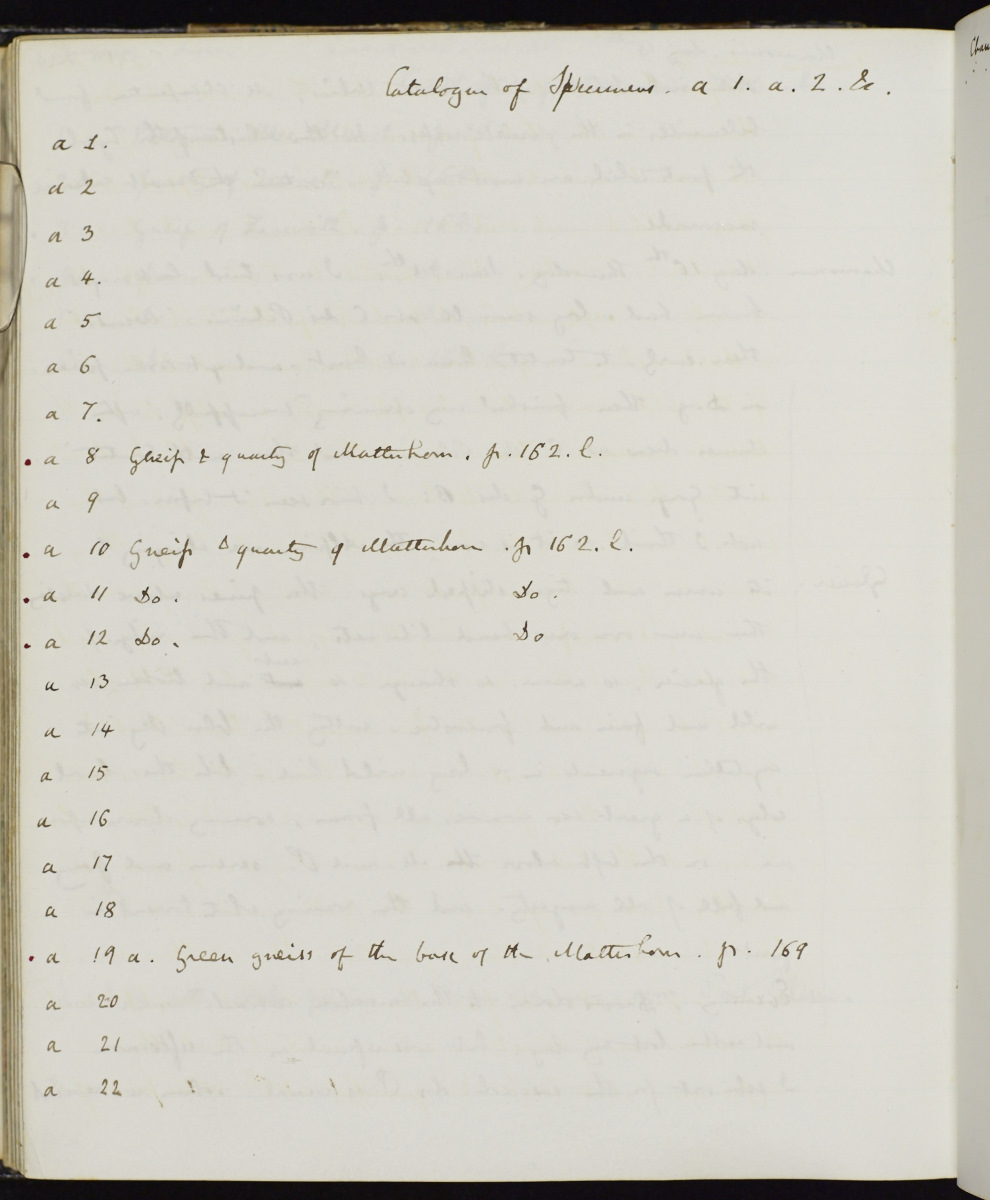 Catalogue of Specimens. a 1. a. 2. &c.
a 1.
a 2
a 3
a 4.
a 5
a 6
a 7.
a 8 Gneiss & quartz of Matterhorn. p. 162. l.
a 9
a 10 Gneiss & quartz of Matterhorn. p 162. l.
a 11 Do. Do.
a 12 Do. Do
a 13
a 14
a 15
a 16
a 17
a 18
a 19 a. Green gneiss of the base of the Matterhorn. p. 169
a 20
a 21
a 22